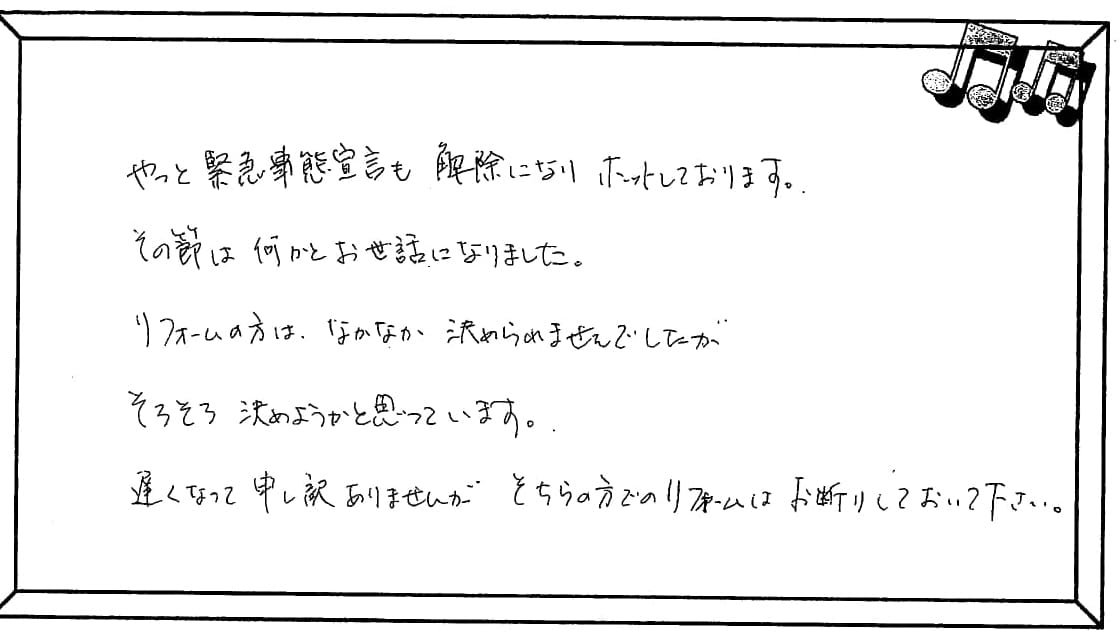 やっと緊急事態宣言も解除になりホットしております。
その節は何かとお世話になりました。
リフォームの方は、なかなか決められませんでしたが
そろそろ決めようかと思っています。
遅くなって申し訳ありませんがそちらの方でのリフォームはお断りしておいて下さい。